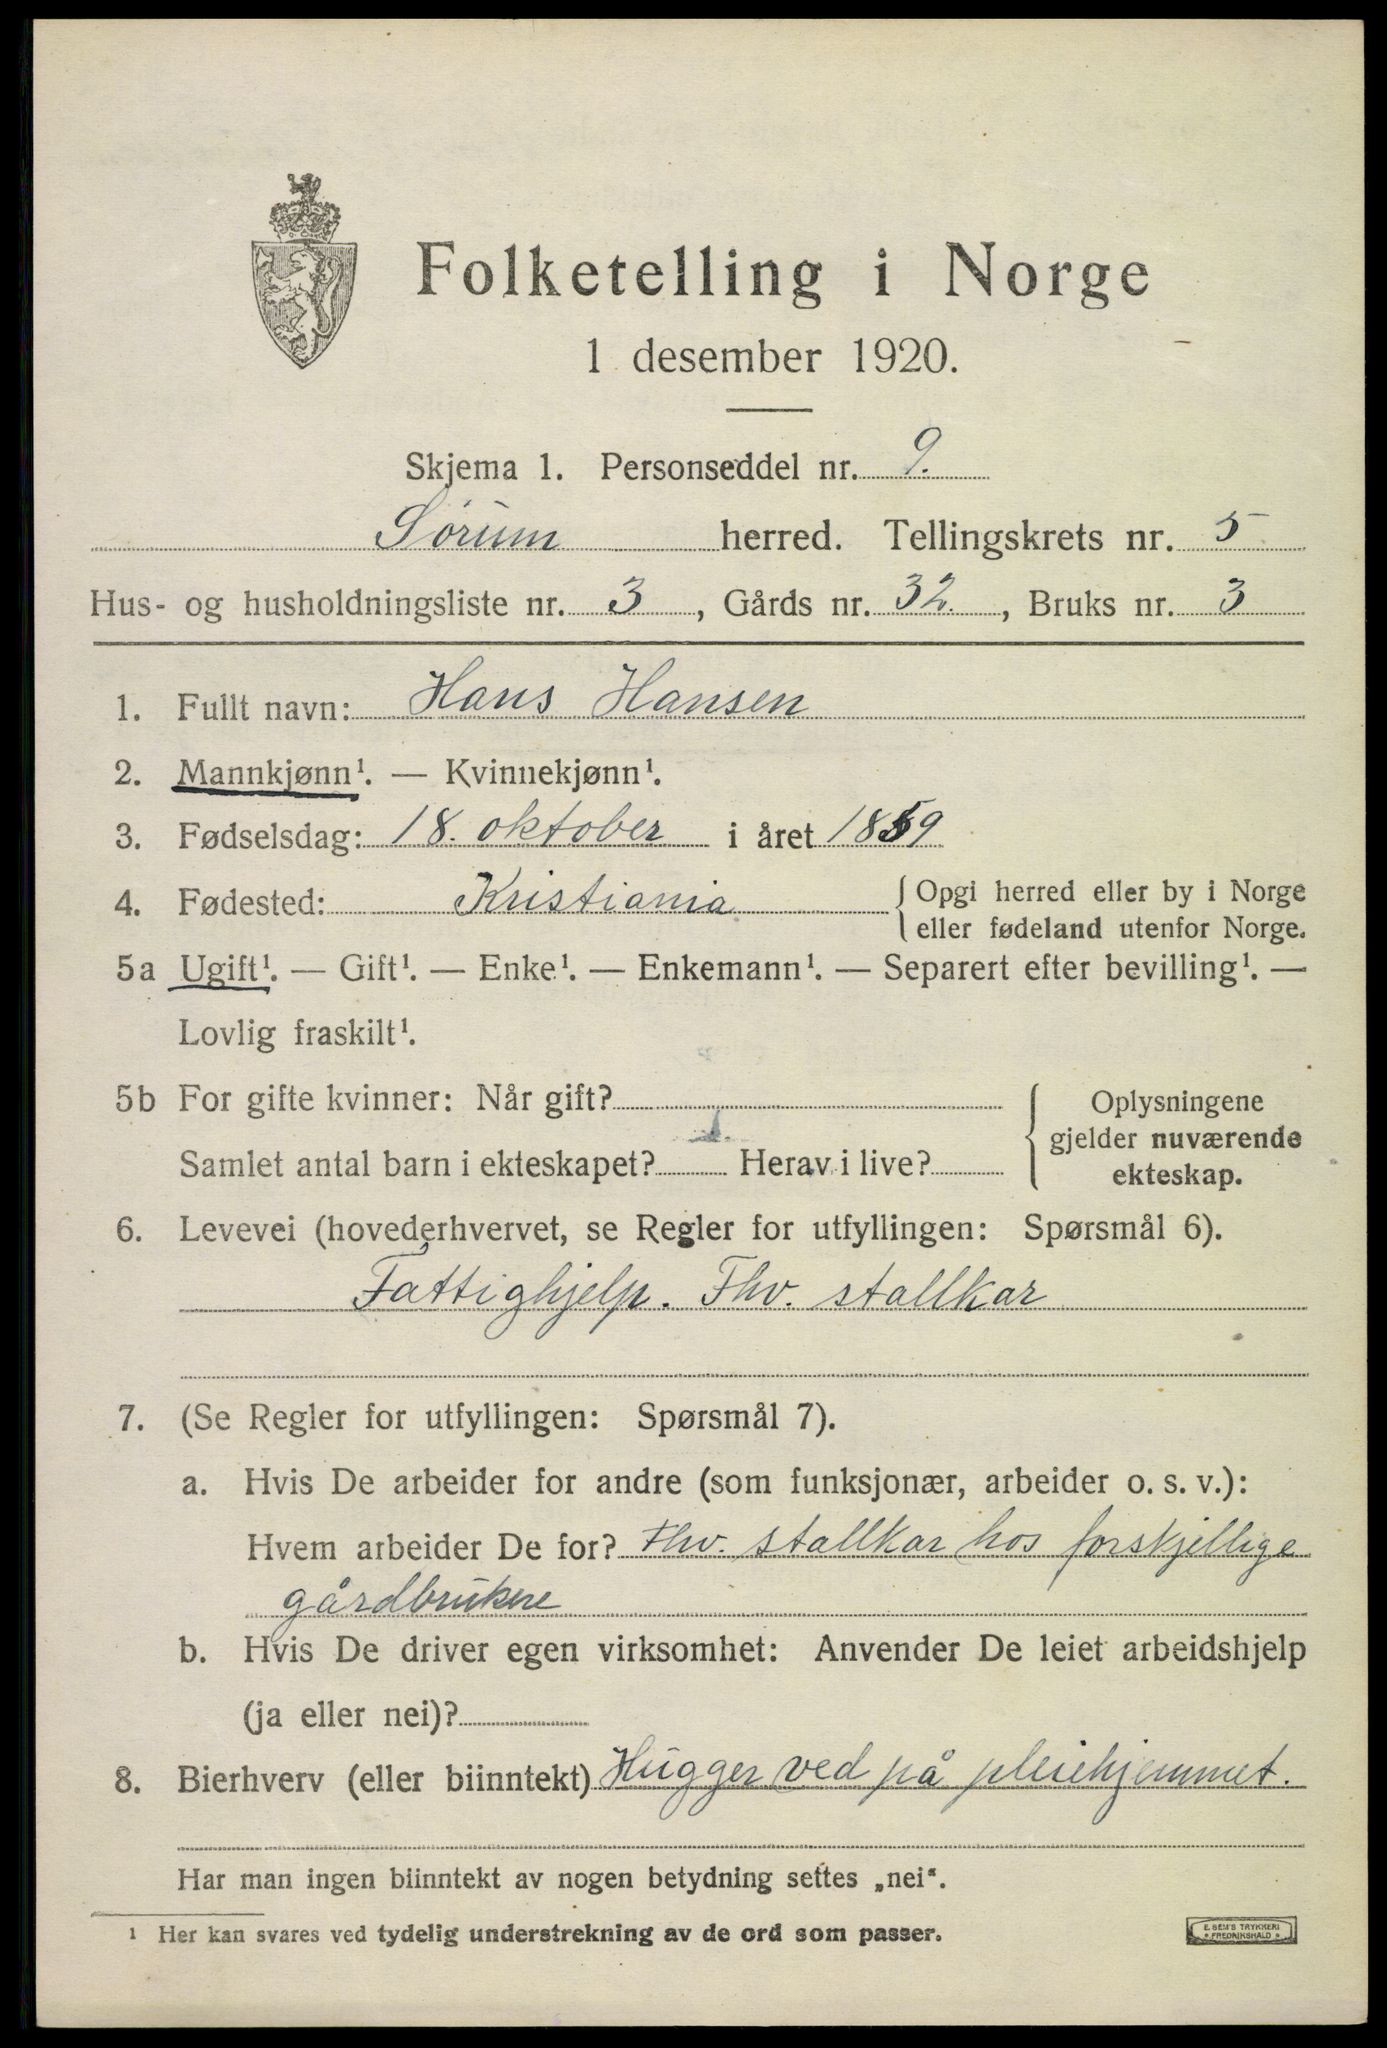 Folketelling i Norge
1 desember 1920.
Skjema 1. Personseddel nr. 9.
Sørum herred. Tellingskrets nr. 5
Hus- og husholdningsliste nr. 3, Gårds nr. 32., Bruks nr. 3
1. Fullt navn: Hans Hansen
2. Mannkjønn¹. — Kvinnekjønn¹.
3. Fødselsdag: 18. oktober i året 1859
4. Fødested: Kristiania { Opgi herred eller by i Norge
eller fødeland utenfor Norge.
5a Ugift¹. — Gift¹. — Enke¹. — Enkemann¹. — Separert efter bevilling¹. —
Lovlig fraskilt¹.
5b For gifte kvinner: Når gift?
Samlet antal barn i ekteskapet? Herav i live?
Oplysningene
gjelder nuværende
ekteskap.
6. Levevei (hovederhvervet, se Regler for utfyllingen: Spørsmål 6).
Fattighjelp. Fhv. stallkar
7. (Se Regler for utfyllingen: Spørsmål 7).
a. Hvis De arbeider for andre (som funksjonær, arbeider o. s. v.):
Hvem arbeider De for? Fhv. stallkar hos forskjellige
gårdbrukere
b. Hvis De driver egen virksomhet: Anvender De leiet arbeidshjelp
(ja eller nei)?
8. Bierhverv (eller biinntekt) Hugger ved på pleiehjemmet.
Har man ingen biinntekt av nogen betydning settes „nei“.
¹ Her kan svares ved tydelig understrekning av de ord som passer.
E. SEM'S TRYKKERI
* FREDRIKSHALD *